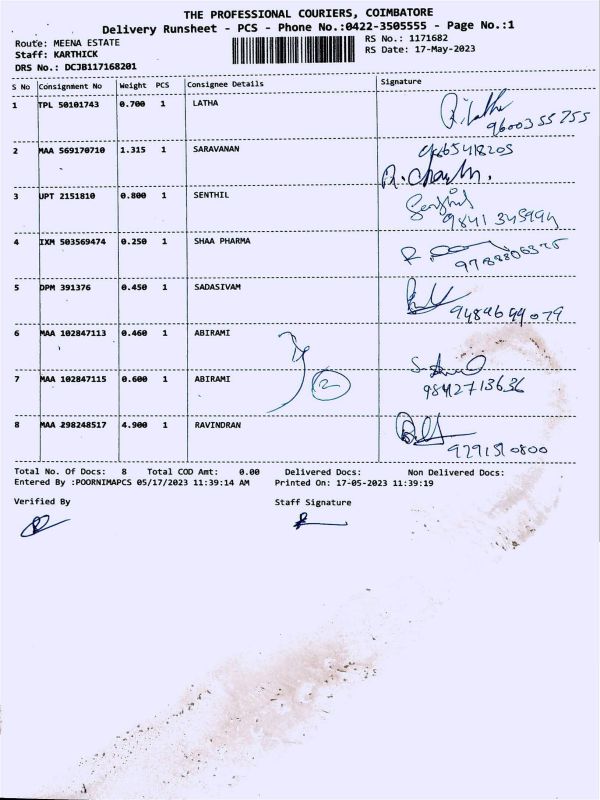 THE PROFESSIONAL COURIERS, COIMBATORE
Delivery Runsheet - PCS - Phone No.:0422-3505555 - Page No.:1
Route: MEENA ESTATE RS No.: 1171682
Staff: KARTHICK RS Date: 17-May-2023
DRS No.: DCJB117168201
S No Consignment No Weight PCS Consignee Details Signature
1 TPL 50101743 0.700 1 LATHA
9600355755
2 MAA 569170710 1.315 1 SARAVANAN
3 UPT 2151810 0.800 1 SENTHIL
4 IXM 503569474 0.250 1 SHAA PHARMA
5 DPM 391376 0.450 1 SADASIVAM
9489699079
6 MAA 102847113 0.460 1 ABIRAMI
7 MAA 102847115 0.600 1 ABIRAMI 2
9842713636
8 MAA 298248517 4.900 1 RAVINDRAN
Total No. Of Docs: 8 Total COD Amt: 0.00 Delivered Docs: Non Delivered Docs:
Entered By :POORNIMAPCS 05/17/2023 11:39:14 AM Printed On: 17-05-2023 11:39:19
Verified By Staff Signature